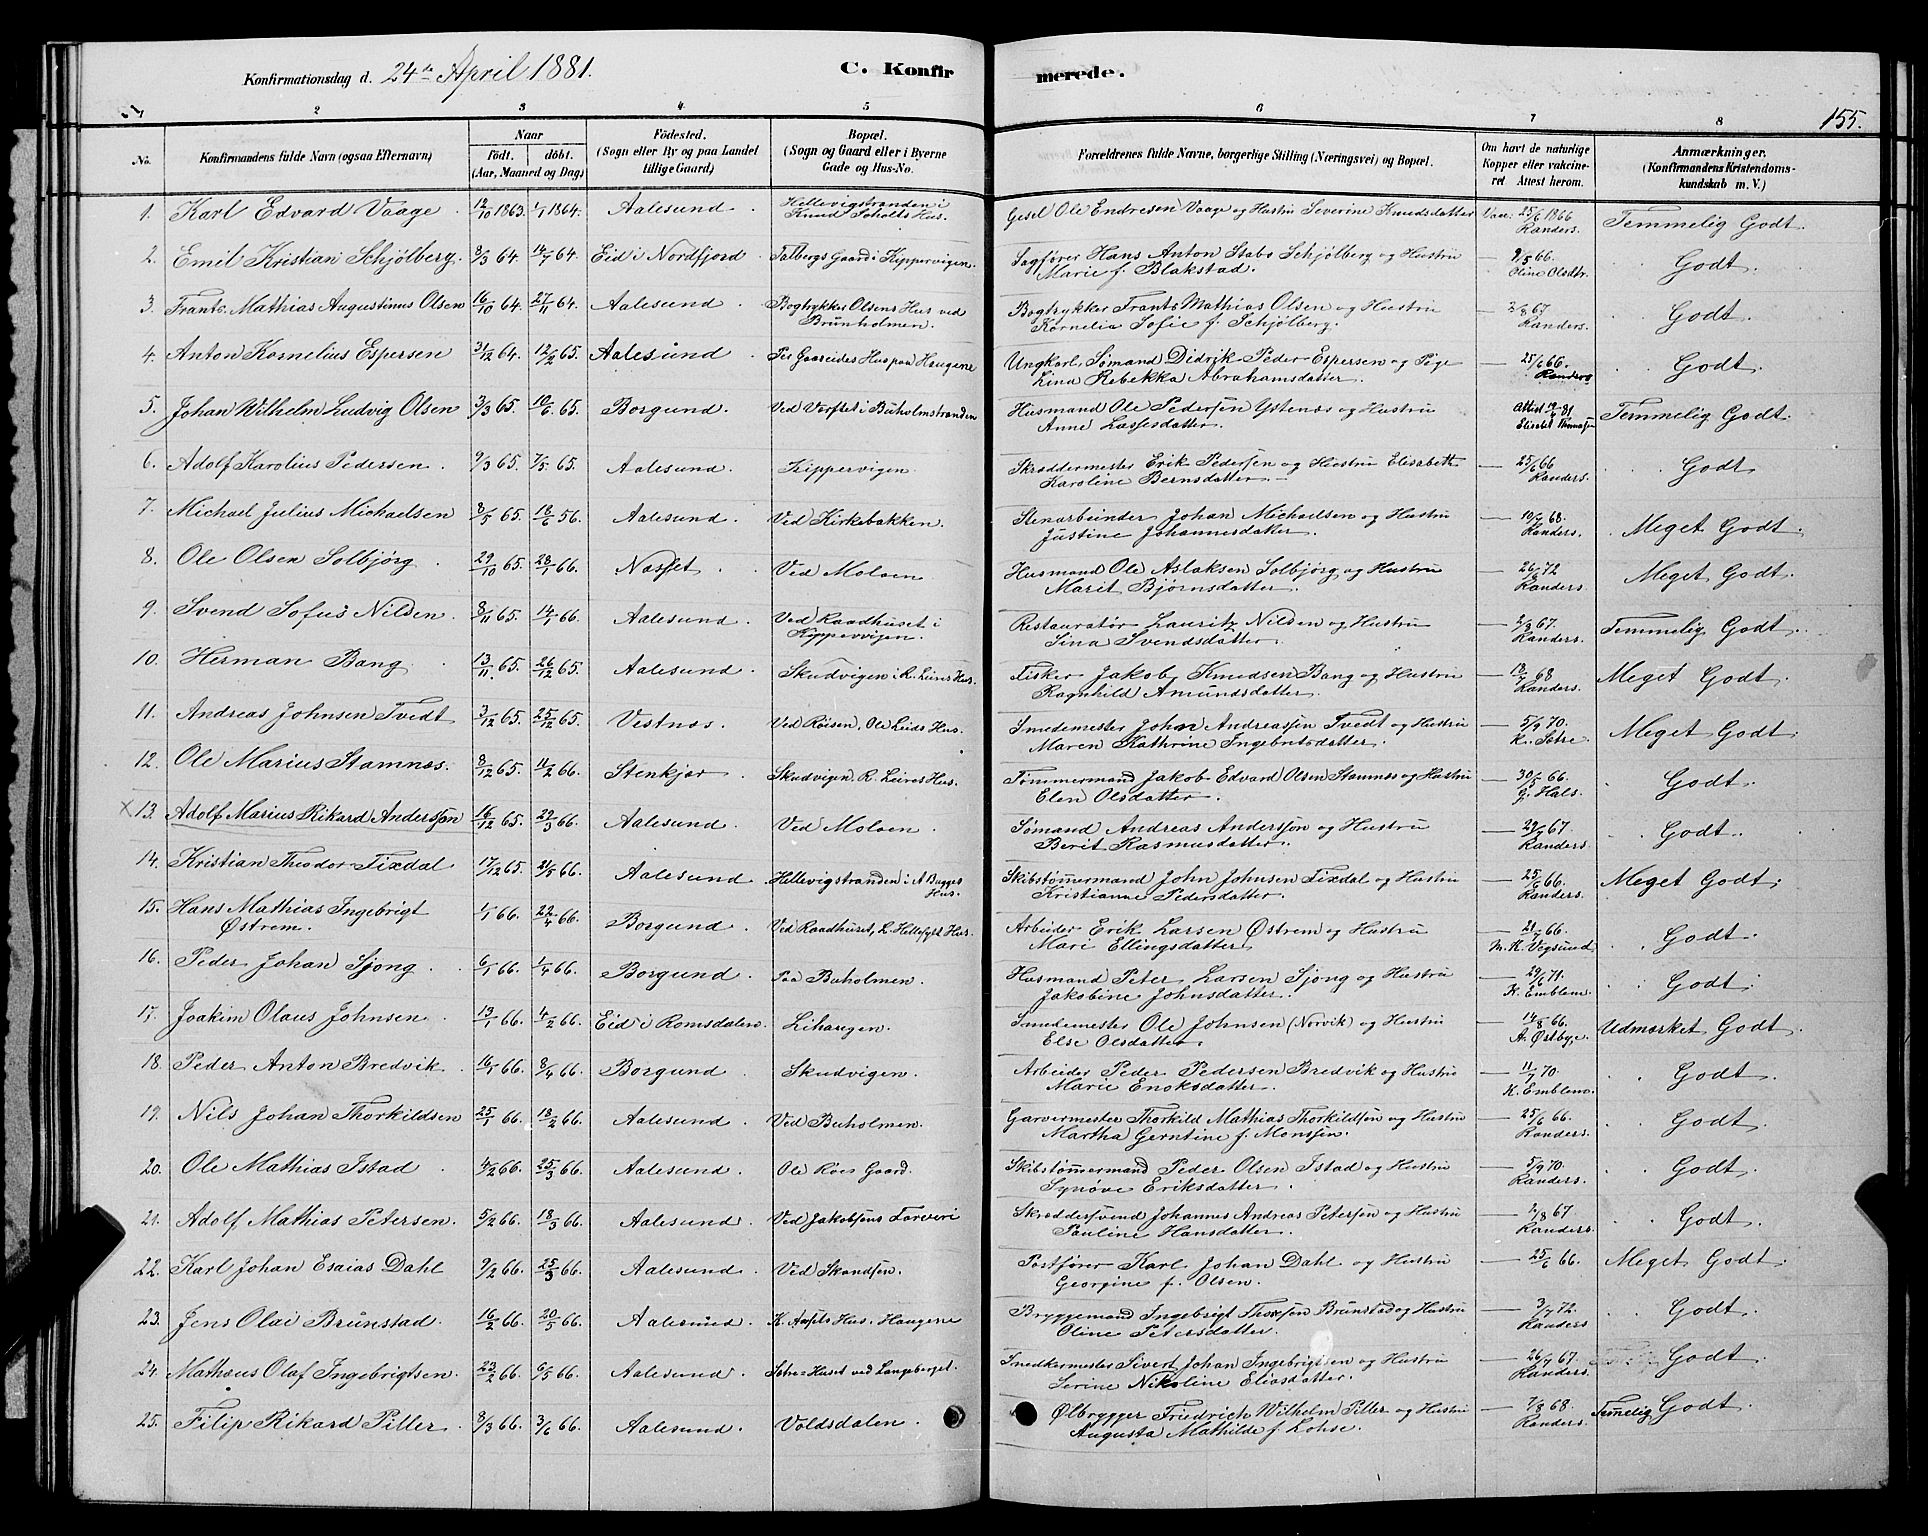 Konfirmationsdag d. 24de April 1881.
C. Konfirmerede.
155.
2 3 4 5 6 7 8
No.
Konfirmandens fulde Navn (ogsaa Efternavn)
Naar
födt. döbt.
(Aar, Maaned og Dag)
Födested.
(Sogn eller By og paa Landet tillige Gaard)
Bopæl.
(Sogn og Gaard eller i Byerne Gade og Hus-No.
Forældrenes fulde Navne, borgerlige Stilling (Næringsvei) og Bopæl.
Om havt de naturlige Kopper eller vakcineret Attest herom.
Anmærkninger.
(Konfirmandens Kristendomskundskab m. V.)
1. Karl Edvard Vaage 12/10 1863. 1/1 1864. Aalesund Hellevigstranden i Knud Scholts Hus. Gesel Ole Endresen Vaage og Hustru Severine Knudsdatter Vac. 25/6 1866 Randers. Temmelig Godt.
2. Emil Kristian Schjölberg. 8/3 64. 14/7 64. Eid i Nordfjord Talbergs Gaard i Kippervigen. Sagfører Hans Anton Stabo Schjölberg og Hustru Marie f. Blakstad. 9/5 66. Eline Olsdtr. Godt.
3. Frants. Mathias Augustinus Olsen 16/10 64. 27/11 64. Aalesund Bogtrykker Olsens Hus ved Brunholmen. Bogtrykker Frants Mathias Olsen og Hustru Kornelia Sofie f. Schjölberg. 2/8 67 Randers. Godt.
4. Anton Kornelius Espersen 31/12 64. 12/2 65. Aalesund Per Gaareides Hus paa Haugene Ungkarl Sømand Didrik Peder Espersen og Pige Lina Rebekka Abrahamsdatter. 25/6 66. Randers Godt
5. Johan Wilhelm Ludvig Olsen 3/3 65. 10/6 65. Borgund. Ved Værftet i Buholmstranden Husmand Ole Pedersen Ystenæs og Hustru Anne Lassesdatter. Attest 19/4 81 Elisabet Thomassen Temmelig Godt.
6. Adolf Karolius Pedersen. 9/3 65. 7/5 65. Aalesund. Kippervigen. Skræddermester Erik Pedersen og Hustru Elisabeth Karoline Berns­datter. 25/6 66 Randers. Godt
7. Michael Julius Michaelsen 8/5 65. 18/6 56. Aalesund. Ved Kirkebakken. Stenarbeider Johan Michaelsen og Hustru Justine Johannesdatter. 10/6 68. Randers. Meget Godt.
8. Ole Olsen Solbjørg 29/10 65. 28/1 66. Nasset Ved Moloen Husmand Ole Aslaksen Solbjørg og Hustru Marit Bjørnsdatter. 26/8 72 Randers Meget Godt.
9. Svend Sofus Nilsen. 8/11 65. 14/1 66. Aalesund. Ved Raadhuset i Kippervigen. Restauratør Lauritz Nilsen og Hustru Sina Svendsdatter. 2/8 67. Randers. Temmelig Godt.
10. Herman Bang 13/11 65. 26/12 65. Aalesund. Skudvigen i R. Leires Hus. Fisker Jakob Knudsen Bang og Hustru Ragnhild Amundsdatter. 18/7 68 Randers. Meget Godt.
11. Andreas Johnsen Tvedt 3/12 65. 25/12 65. Vestnæs. Ved Røisen, Ole Leids Hus. Smedemester John Andreassen Tvedt og Hustru Maren Kathrine Ingebritsdatter. 5/9 70. K. Sætre. Meget Godt.
12. Ole Marius Stamnæs. 8/12 65. 11/2 66. Stenkjær. Skudvigen, R. Leires Hus. Tømmermand Jakob Edvard Olsen Stamnes og Hustru Elen Olsdatter. 30/5 66. G. Hals. Godt.
× 13. Adolf Marius Rikard Anderssøn 16/12 65. 29/3 66. Aalesund. Ved Moloen. Sømand Andreas Anderssøn og Hustru Berit Rasmusdatter. 29/7 67. Randers. Godt.
14. Kristian Theodor Fixdal 17/12 65. 21/5 66. Aalesund Hellevigstranden i A Bugges Hus. Skibstømmermand John Johnsen Fixdal og Hustru Kristianne Pedersdatter. 25/6 66. Randers. Meget Godt.
15. Hans Mathias Ingebrigt Østrem. 1/1 66. 22/4 66. Borgund Ved Raadhuset, L. Hellesylt Hus. Arbeider Erik Larsen Østrem og Hustru Mari Ellingsdatter 21/7 66. M. K. Vegsund Godt.
16. Peder Johan Sjong. 6/1 66. 1/4 66. Borgund Paa Buholmen. Husmand Peter Larsen Sjong og Hustru Jakobine Johnsdatter. 29/6 71. K. Emblem. Godt.
17. Joakim Olaus Johnsen. 13/1 66. 4/2 66. Eid i Romsdalen. Lihaugen. Smedemester Ole Johnsen (Norvik) og Hustru Else Olsdatter. 14/8 66. A. Østbye. Udmærket Godt.
18. Peder Anton Bredvik 16/1 66. 8/4 66. Borgund. Skudvigen. Arbeider Peder Pedersen Bredvik og Hustru Marie Enoksdatter. 11/7 70. K. Emblem. Godt.
19. Nils Johan Thorkildsen 25/1 66. 18/2 66. Aalesund. Ved Buholmen. Garvermester Thorkild Mathias Thorkildsøn og Hustru Martha Gerntine f. Monssen. 25/6 66. Randers. Godt.
20. Ole Mathias Istad 4/2 66. 25/3 66. Aalesund. Ole Røes Gaard. Skibstømmermand Peder Olsen Istad og Hustru Synøve Eriksdatter. 5/9 70. Randers. Godt.
21. Adolf Mathias Petersen. 5/2 66. 18/3 66. Aalesund. Ved Jakobsens Farveri Skræddersvend Johannes Andreas Petersen og Hustru Pauline Hansdatter. 2/8 67 Randers. Godt.
22. Karl Johan Esaias Dahl 9/2 66. 25/3 66. Aalesund. Ved Skandsen. Postfører Karl Johan Dahl og Hustru Georgine f. Olsen. 25/6 66. Meget Godt.
23. Jens Olai Brunstad. 16/2 66. 20/5 66. Aalesund K. Aasets Hus. Haugene Bryggemand Ingebrigt Thorsen Brunstad og Hustru Oline Petersdatter. 3/7 72. Randers. Godt.
24. Mathæus Olaf Ingebrigtsen. 23/2 66. 6/5 66. Aalesund. Sætre-Huset ved Langeberget. Snedkermester Sivert Johan Ingebrigtsen og Hustru Serine Nikoline Eliasdatter. 26/7 67. Randers. Godt.
25. Filip Rikard Piller. 8/3 66. 3/6 66. Aalesund. Voldsdalen. Ølbrygger Friedrich Wilhelm Piller og Hustru Augusta Mathilde f. Lohse. 7/8 68. Randers. Temelig Godt.